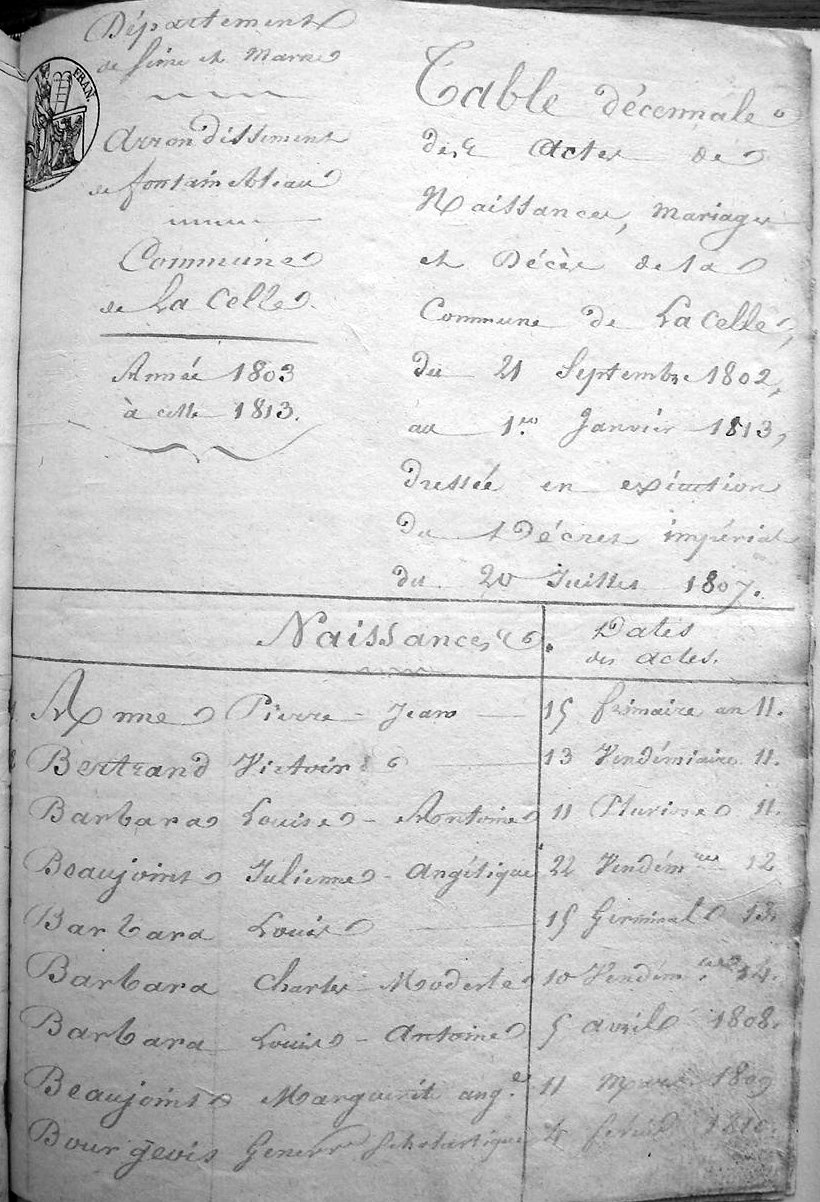 FRAN.
Département
de Seine et Marne
Arrondissement
de fontainebleau
Commune
de La Celle.
Année 1803
à celle 1813.
Table décennale
des Actes de
Naissances, Mariages
et Décès de la
Commune de La Celle,
du 21 Septembre 1802,
au 1er Janvier 1813,
dressée en exécution
du Décret impérial
du 20 Juillet 1807.
Naissances.
Dates
des actes.
Anne Pierre Jean 15 frimaire an 11.
Bertrand Victoire 13 Vendémiaire 11.
Barbara Louise - Antoine 11 Pluviose 11.
Beaujoint Julienne - Angélique 22 Vendémre 12
Barbara Louis 15 Germinal 13.
Barbara Charles Modeste 10 Vendémre 14.
Barbara Louis - Antoine 5 avril 1808.
Beaujoint Marguerite ang.e 11 Mars 1809
Bourgeois Scholastique 4 1810.